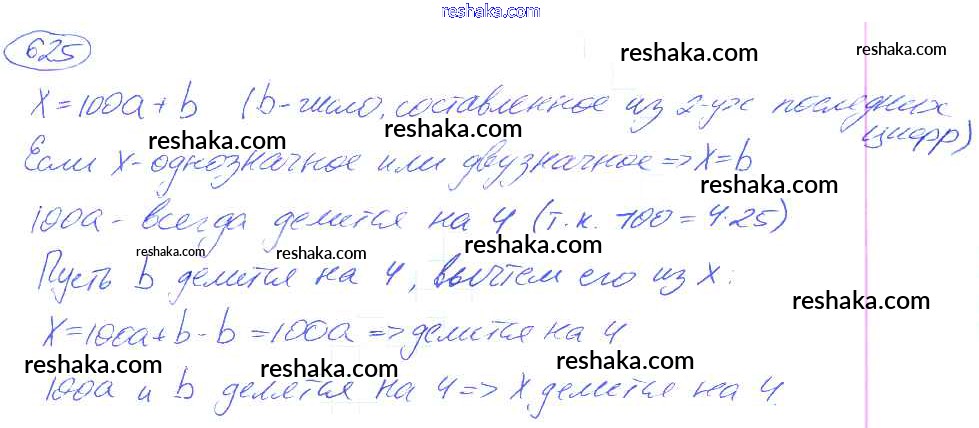 reshaka.com
625
reshaka.com
reshaka.com
X=100a+b (b-число, составленное из 2-ух последних
цифр)
reshaka.com
reshaka.com
Если X-однозначное или двузначное=>X=b
reshaka.com
100a-всегда делится на 4 (т.к. 100=4·25)
reshaka.com
reshaka.com
reshaka.com
Пусть b делится на 4, вычтем его из X:
reshaka.com
X=100a+b-b=100a=>делится на 4
reshaka.com
reshaka.com
reshaka.com
100a и b делятся на 4=>X делится на 4.
reshaka.com